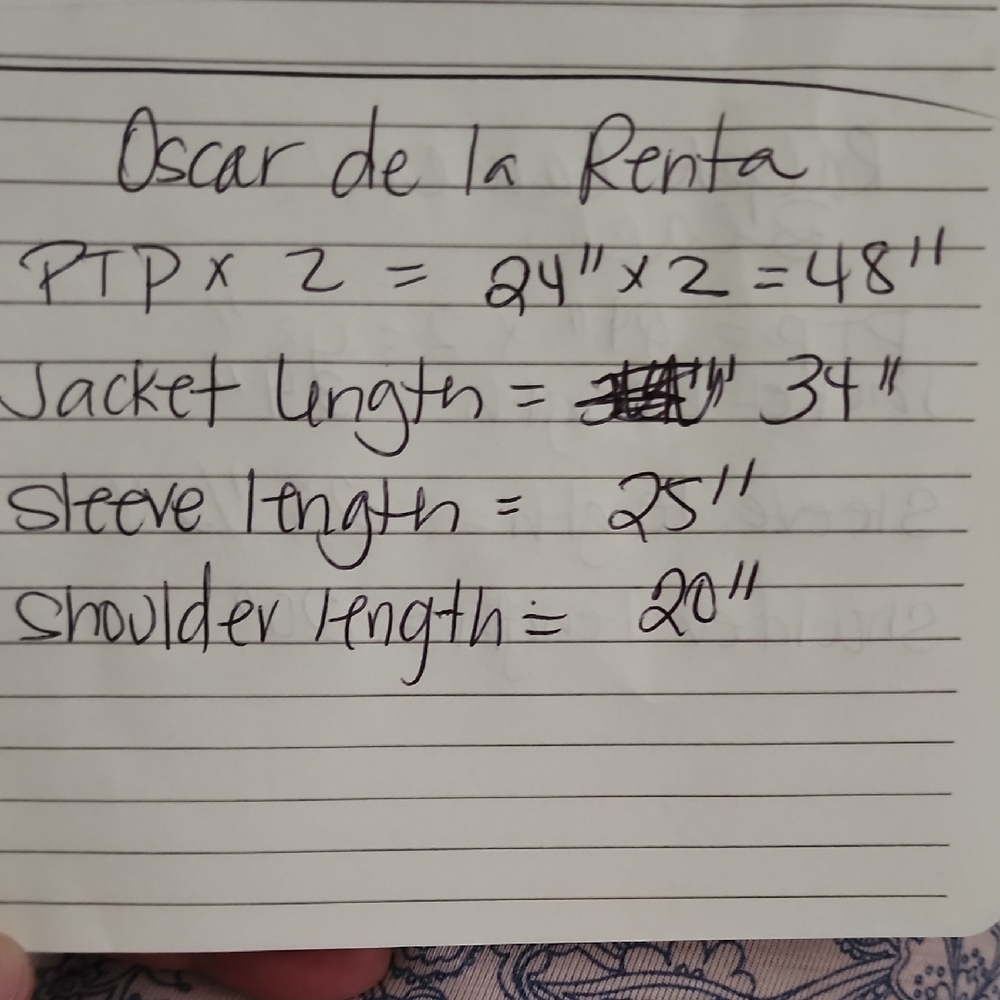 Oscar de la Renta
PTP x 2 = 24" x 2 = 48"
Jacket length = 34"
Sleeve length = 25"
Shoulder length = 20"